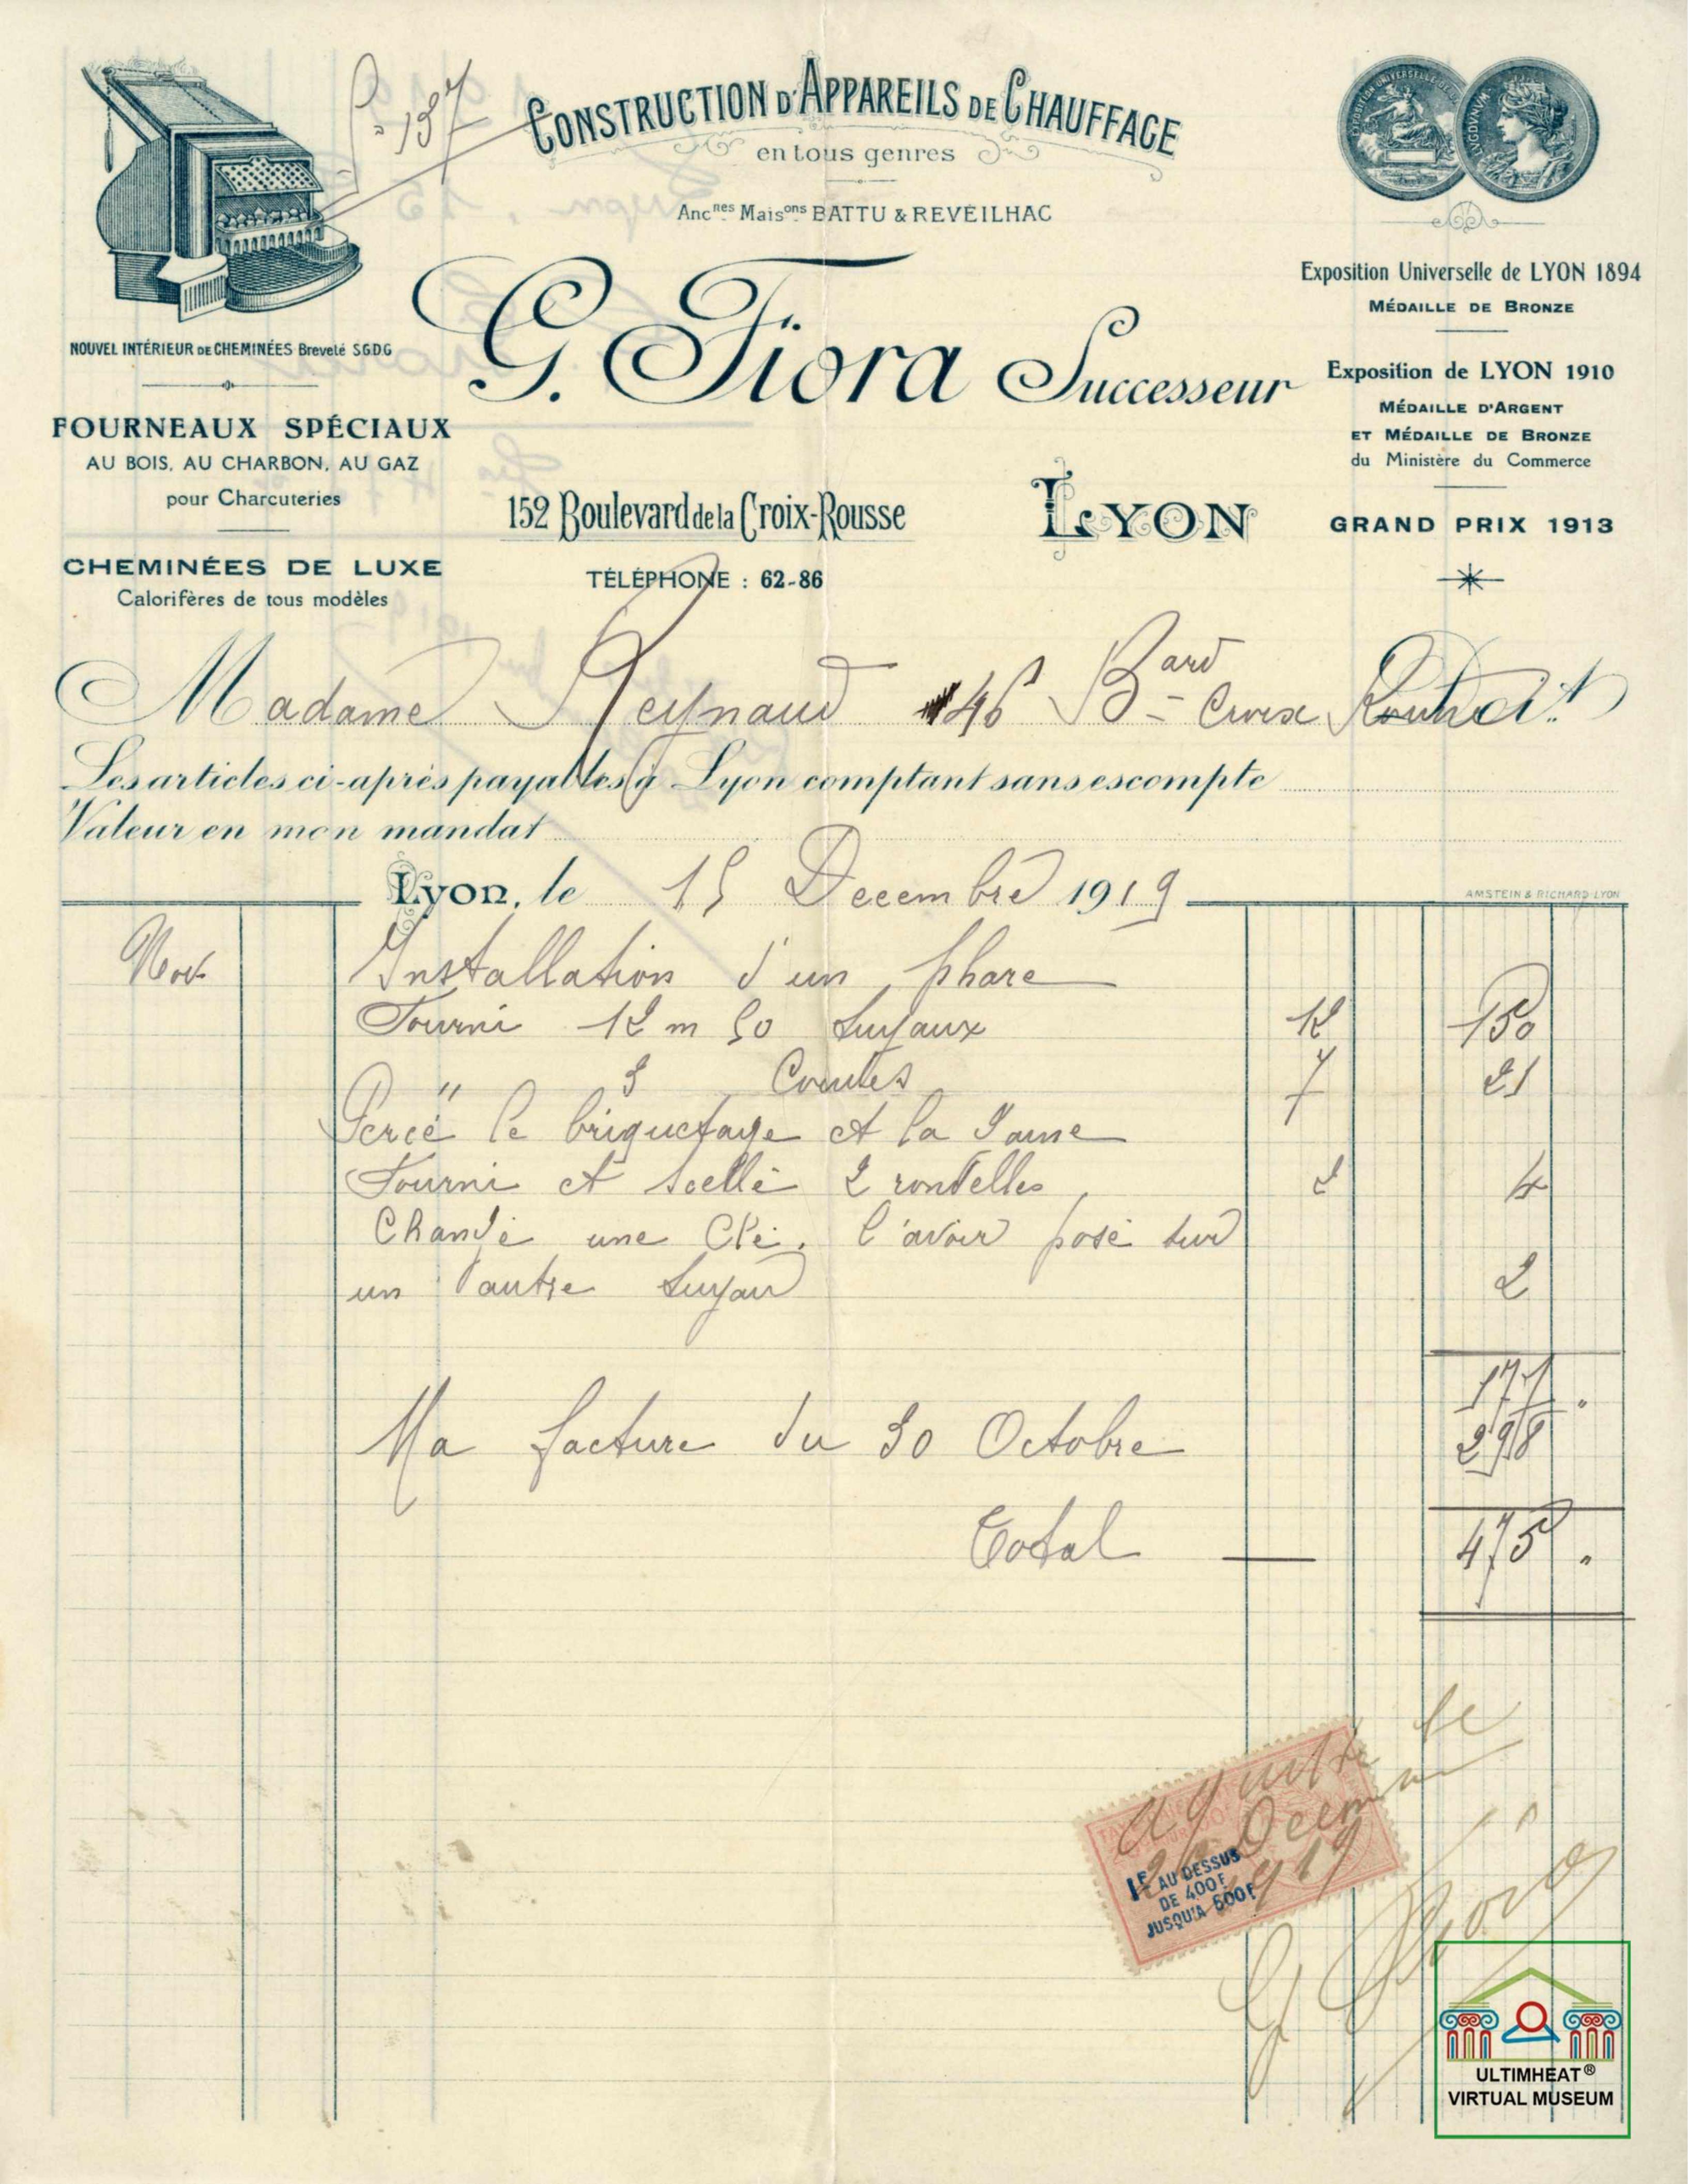 P. 137
CONSTRUCTION D'APPAREILS DE CHAUFFAGE
en tous genres
Anc.nes Maisons BATTU & REVEILHAC
G. Fiora Successeur
152 Boulevard de la Croix-Rousse
LYON
TÉLÉPHONE : 62-86
NOUVEL INTÉRIEUR DE CHEMINÉES Breveté S.G.D.G
FOURNEAUX SPÉCIAUX
AU BOIS, AU CHARBON, AU GAZ
pour Charcuteries
CHEMINÉES DE LUXE
Calorifères de tous modèles
LUGDVNVM
Exposition Universelle de LYON 1894
MÉDAILLE DE BRONZE
Exposition de LYON 1910
MÉDAILLE D'ARGENT
ET MÉDAILLE DE BRONZE
du Ministère du Commerce
GRAND PRIX 1913
Madame Reynaud 46 Bard Croix Rousse Doit
Les articles ci-après payables à Lyon comptant sans escompte
Valeur en mon mandat
Lyon, le 15 Decembre 1919
AMSTEIN & RICHARD LYON
Nov. Installation d'un phare
Fourni 12 m 50 tuyaux 12 150
" 3 Coudes 7 21
Percé le briquetage et la
Fourni et scellé 2 rondelles 2 4
Changé une Clé, l'avoir posé sur
un autre tuyau 2
177 "
Ma facture du 30 Octobre 298
Total 475 "
acquitté le
Décembre
1919
1F AU DESSUS
DE 400F
JUSQU'A 600F
G Fiora
ULTIMHEAT®
VIRTUAL MUSEUM